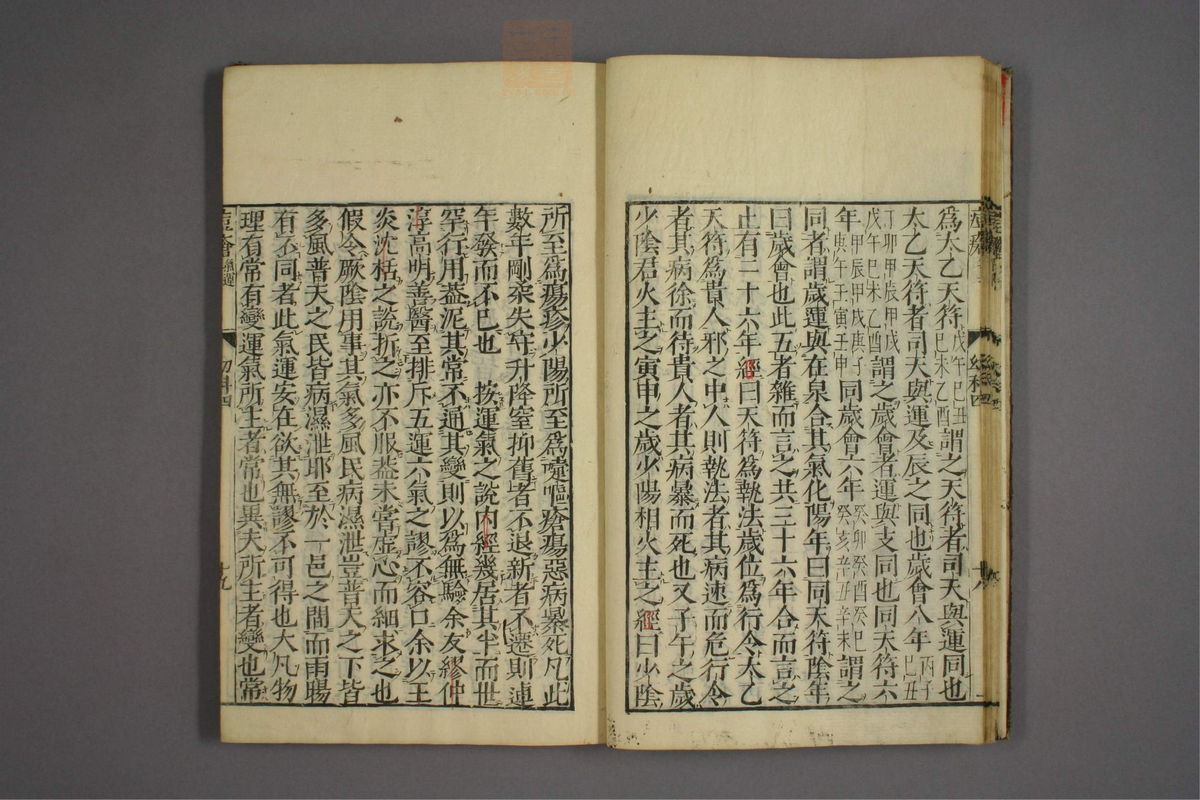 爲太乙天符戊午巳丑巳未乙酉謂之天符者司天與運同也
太乙天符者司天與運及辰之同也歲會八年丙子巳丑
丁卯甲辰甲戌戊午巳未乙酉謂之歲會者運與支同也同天符六
年甲辰甲戌庚子庚午壬寅壬申同歲會六年癸卯癸酉癸巳癸亥辛丑辛未謂之
同者謂歲運與在泉合其氣化陽年曰同天符陰年
曰歲會也此五者雜而言之共三十六年合而言之
止有二十六年經曰天符爲執法歲位爲行令太乙
天符爲貴人邪之中人則執法者其病速而危行令
者其病徐而待貴人者其病暴而死也又子午之歲
少陰君火主之寅申之歲少陽相火主之經曰少陰
幼科四
十八
所至爲瘍疹少陽所至爲嚏嘔瘡瘍惡病暴死凡此
數年剛柔失守升降窒抑舊者不退新者不遷則連
年發而不已也 按運氣之說內經幾居其半而世
罕行用葢泥其常不通其變則以爲無驗余友繆仲
淳高明善醫至排斥五運六氣之謬不容口余以王
炎沈括之說折之亦不服葢未嘗虛心而細求之也
假令厥陰用事其氣多風民病濕泄豈普天之下皆
多風普天之民皆病濕泄耶至於一邑之間而雨暘
有不同者此氣運安在欲其無謬不可得也大凡物
理有常有變運氣所主者常也異夫所主者變也常
幼科四
十九